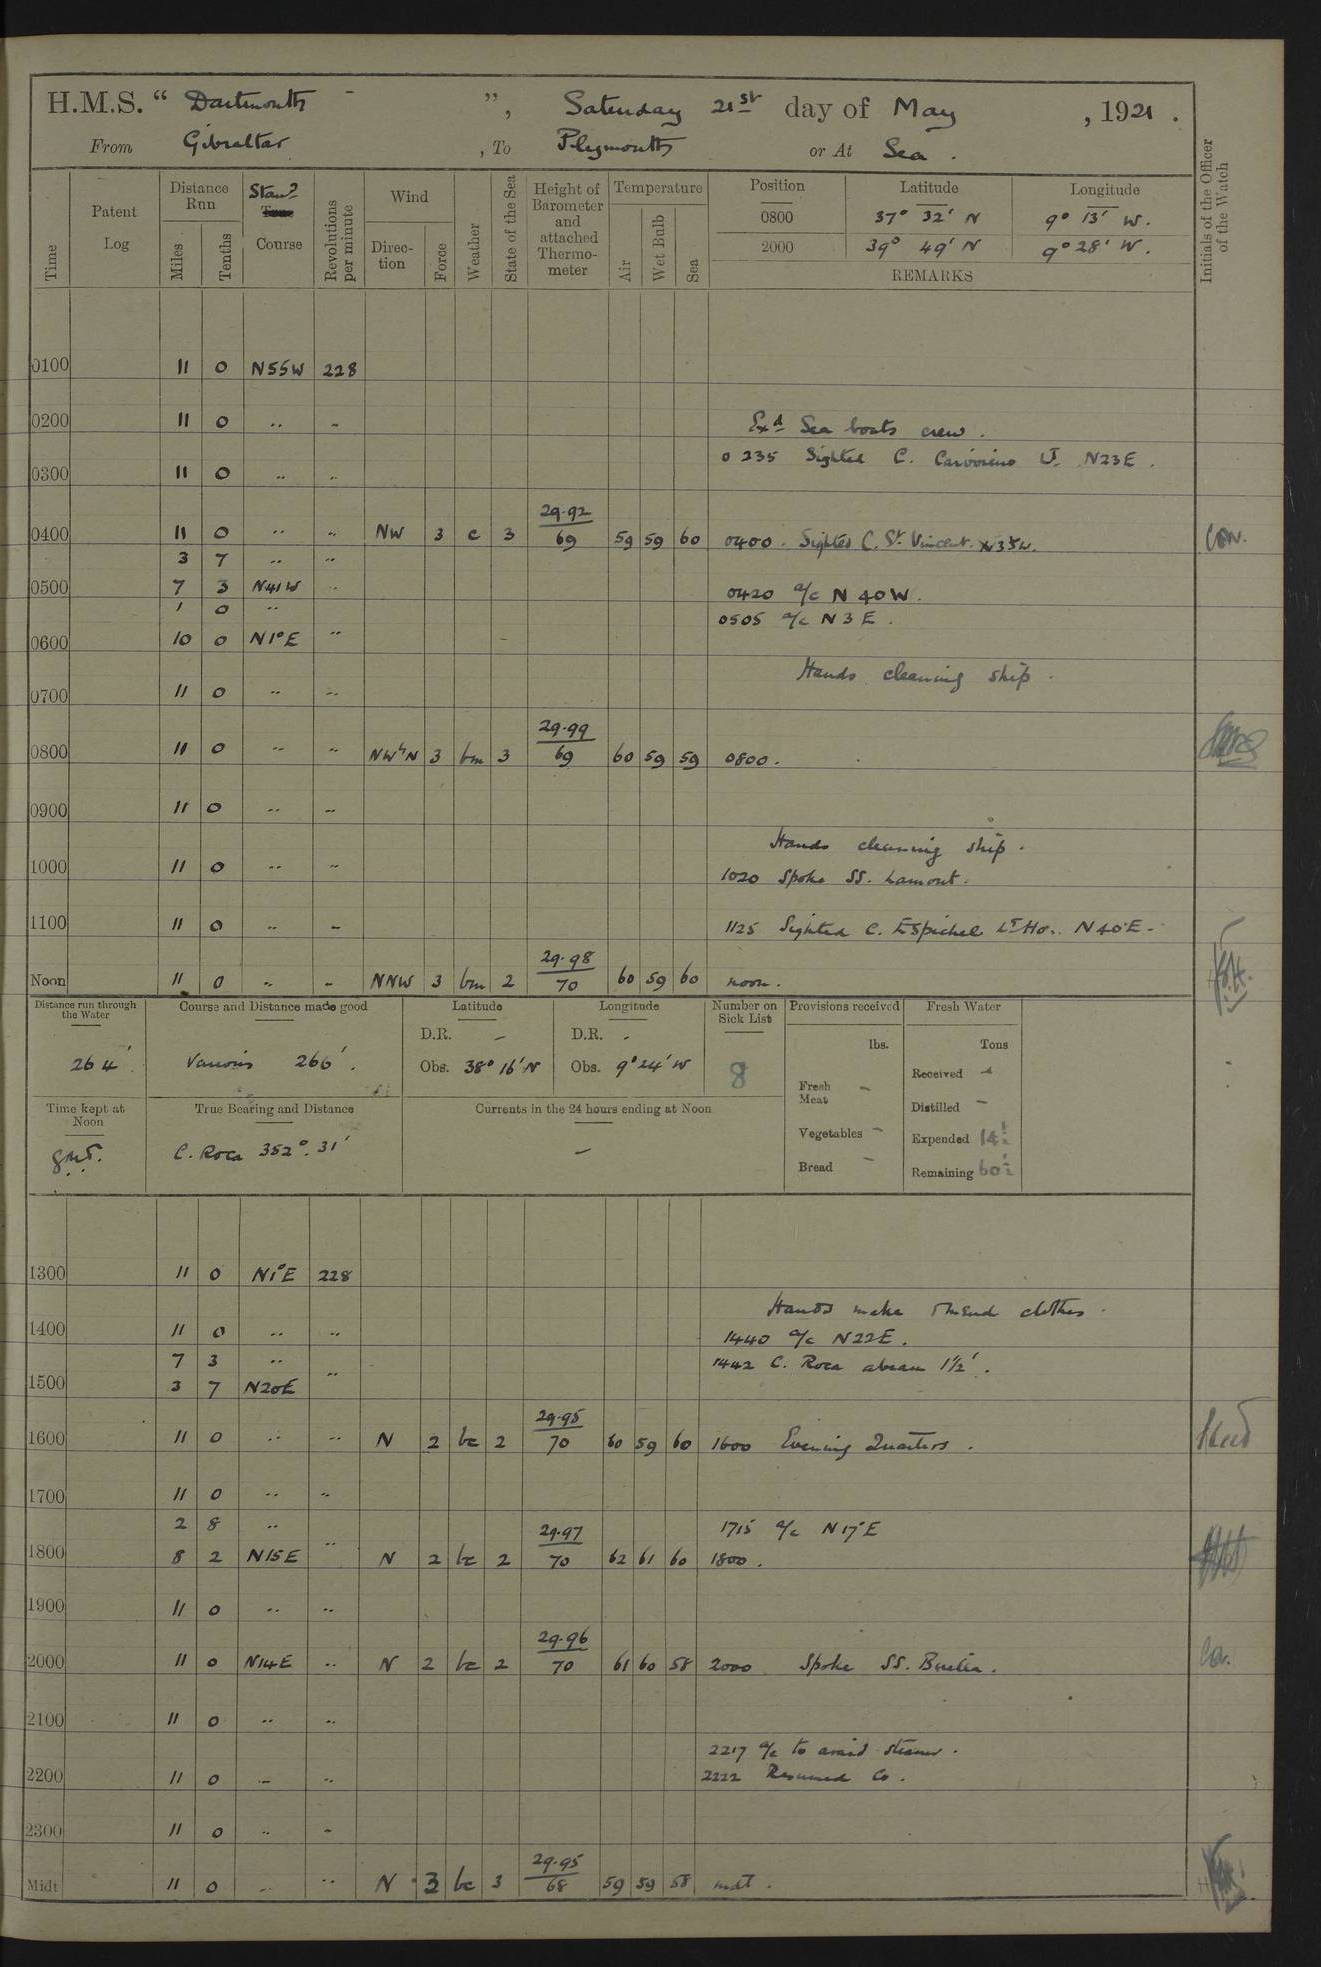 H.M.S. “ Dartmouth ”, Saturday 21st day of May, 1921.
From Gibraltar, To Plymouth or At Sea.
Time Patent Log Distance Run Miles Tenths Stand. True Course Revolutions per minute Wind Direction Force Weather State of the Sea Height of Barometer and attached Thermometer Temperature Air Wet Bulb Sea Position Latitude Longitude Initials of the Officer of the Watch
0800 37° 32' N 9° 13' W.
2000 39° 49' N 9° 28' W.
REMARKS
0100 11 0 N55W 228
0200 11 0 " " Exd Sea boats crew.
0235 Sighted C. N23E.
0300 11 0 " "
0400 11 0 " " NW 3 c 3 29.92 69 59 59 60 0400. Sighted C. St Vincent.
3 7 " "
0500 7 3 N41W " 0420 a/c N 40 W.
1 0 " 0505 a/c N 3 E.
0600 10 0 N1°E "
Hands cleaning ship.
0700 11 0 " "
0800 11 0 " " NW'N 3 bm 3 29.99 69 60 59 59 0800.
0900 11 0 " "
Hands cleaning ship.
1000 11 0 " " 1020 Spoke SS. Lamont.
1100 11 0 " " 1125 Sighted C. Espichel Lt Ho. N40°E.
Noon 11 0 " " NNW 3 bm 2 29.98 70 60 59 60 noon.
Distance run through the Water 264'.
Course and Distance made good Various 266'.
Latitude D.R. - Obs. 38° 16' N
Longitude D.R. - Obs. 9° 24' W
Number on Sick List 8
Provisions received lbs. Fresh Meat - Vegetables - Bread -
Fresh Water Tons Received - Distilled - Expended 14½ Remaining 60½
Time kept at Noon GMT.
True Bearing and Distance C. Roca 352°. 31'
Currents in the 24 hours ending at Noon -
1300 11 0 N1°E 228
Hands make & mend clothes.
1400 11 0 " " 1440 a/c N22E.
7 3 " 1442 C. Roca abeam 1½'.
1500 3 7 N20E "
1600 11 0 " " N 2 bc 2 29.95 70 60 59 60 1600 Evening Quarters.
1700 11 0 " "
2 8 " 1715 a/c N17°E
1800 8 2 N15E " N 2 bc 2 29.97 70 62 61 60 1800.
1900 11 0 " "
2000 11 0 N14E " N 2 bc 2 29.96 70 61 60 58 2000 Spoke SS.
2100 11 0 " "
2217 a/c to avoid steamer.
2200 11 0 " " 2222 Resumed Co.
2300 11 0 " "
Midt 11 0 " " N 3 bc 3 29.95 68 59 59 58 mdt.